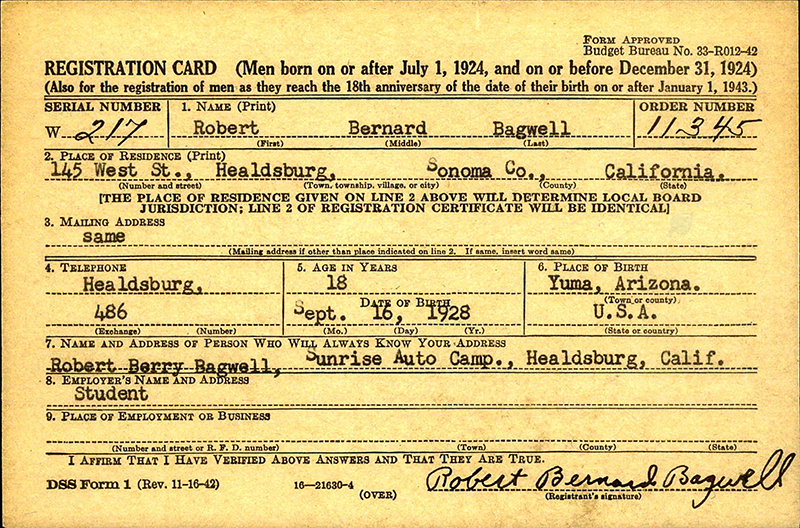 FORM APPROVED
Budget Bureau No. 33-R012-42
REGISTRATION CARD (Men born on or after July 1, 1924, and on or before December 31, 1924)
(Also for the registration of men as they reach the 18th anniversary of the date of their birth on or after January 1, 1943.)
SERIAL NUMBER 1. NAME (Print) ORDER NUMBER
W 217 Robert Bernard Bagwell 11345
(First) (Middle) (Last)
2. PLACE OF RESIDENCE (Print)
145 West St., Healdsburg, Sonoma Co., California.
(Number and street) (Town, township, village, or city) (County) (State)
[THE PLACE OF RESIDENCE GIVEN ON LINE 2 ABOVE WILL DETERMINE LOCAL BOARD
JURISDICTION; LINE 2 OF REGISTRATION CERTIFICATE WILL BE IDENTICAL]
3. MAILING ADDRESS
same
(Mailing address if other than place indicated on line 2. If same, insert word same)
4. TELEPHONE 5. AGE IN YEARS 6. PLACE OF BIRTH
Healdsburg, 18 Yuma, Arizona.
DATE OF BIRTH (Town or county)
486 Sept. 16, 1928 U.S.A.
(Exchange) (Number) (Mo.) (Day) (Yr.) (State or country)
7. NAME AND ADDRESS OF PERSON WHO WILL ALWAYS KNOW YOUR ADDRESS
Robert Berry Bagwell, Sunrise Auto Camp., Healdsburg, Calif.
8. EMPLOYER'S NAME AND ADDRESS
Student
9. PLACE OF EMPLOYMENT OR BUSINESS
(Number and street or R. F. D. number) (Town) (County) (State)
I AFFIRM THAT I HAVE VERIFIED ABOVE ANSWERS AND THAT THEY ARE TRUE.
DSS Form 1 (Rev. 11-16-42) 16—21630-4 Robert Bernard Bagwell
(OVER) (Registrant's signature)